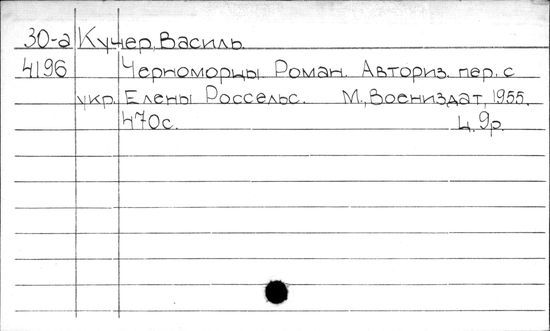 30-а Кучер, Василь.
4196 Черноморцы Роман. Авториз. пер. с
укр. Елены Россельс. М., Воениздат, 1955.
470с. Ц. 9р.